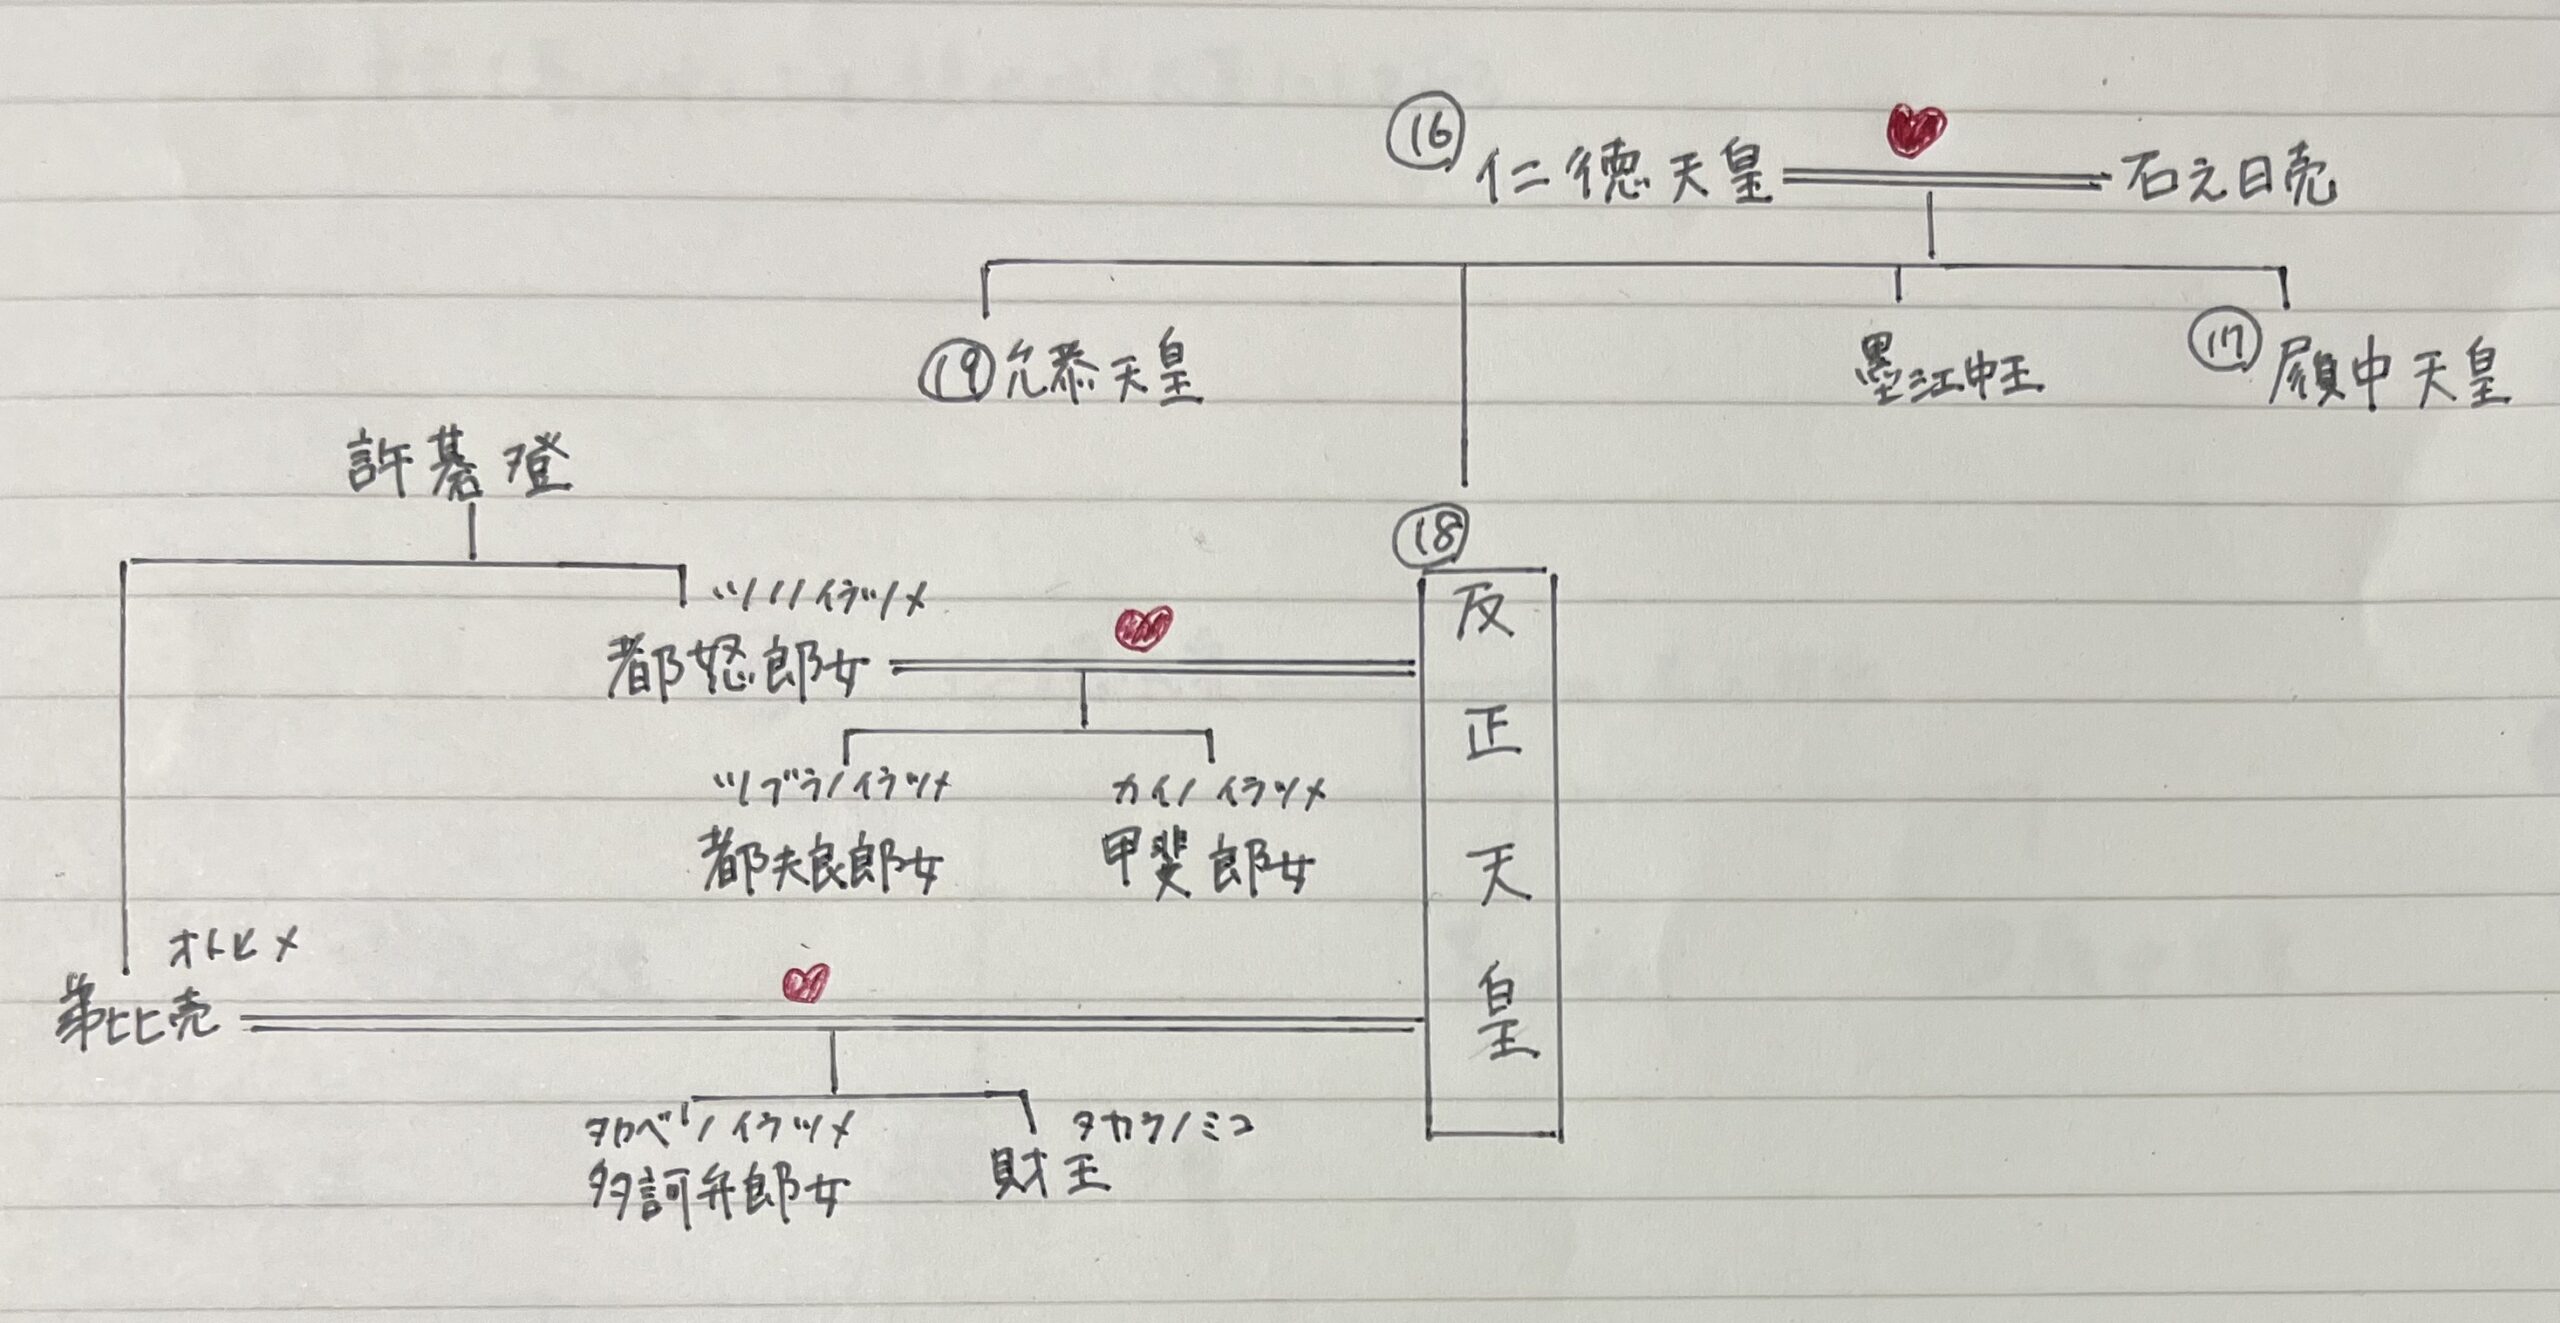 ⑯ 仁徳天皇 石之日売
⑲ 允恭天皇
墨江中王
⑰ 履中天皇
許碁登
⑱
反正天皇
ツノノイラツメ
都怒郎女
ツブラノイラツメ
都夫良郎女
カイノイラツメ
甲斐郎女
オトヒメ
弟比売
タカベノイラツメ
多訶弁郎女
タカラノミコ
財王